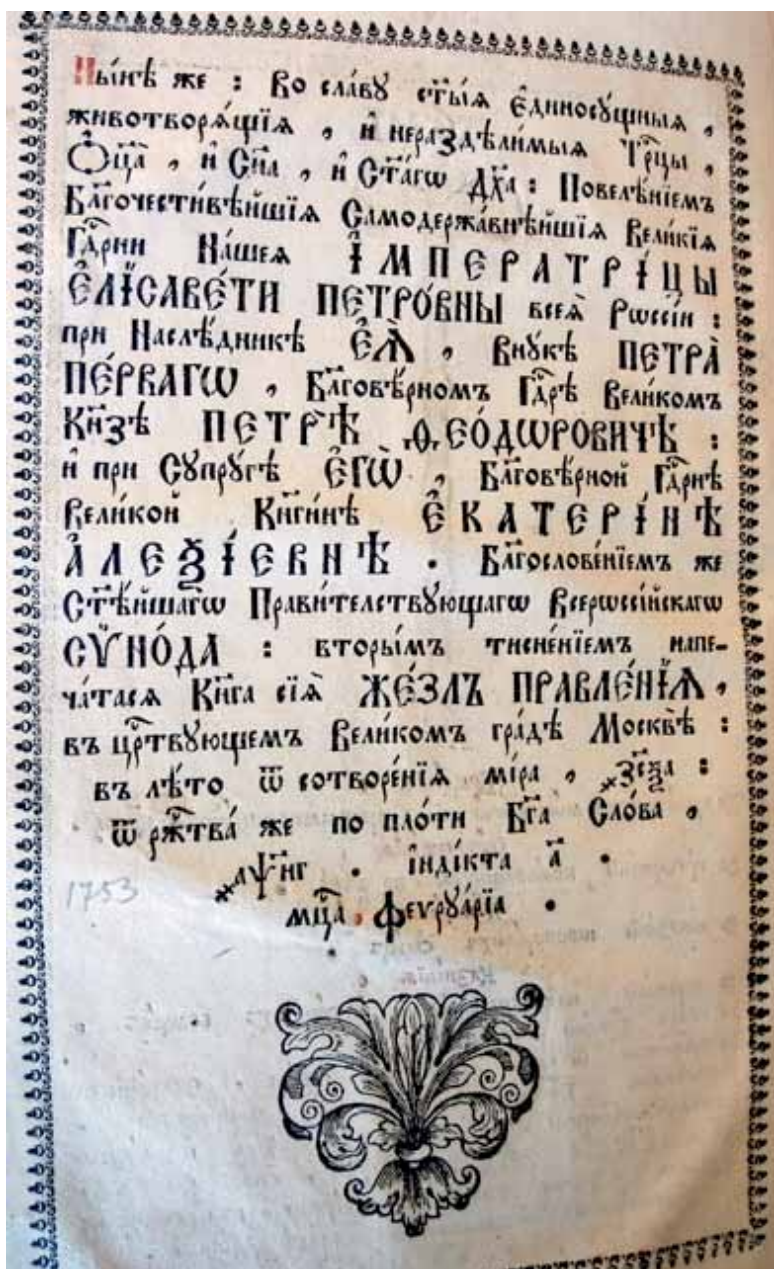 Ны́нѣ же : Во сла́ву ст҃ы́ѧ є҆диносꙋ́щныѧ ,
животворѧ́щїѧ , и҆ нераздѣли́мыѧ Трⷪ҇цы ,
Ѻ҆ц҃а̀ , и҆ Сн҃а , и҆ Ст҃а́гѡ Дх҃а : Повелѣ́нїемъ
Бл҃гочести́вѣйшїѧ Самодержа́внѣйшїѧ Вели́кїѧ
Гдⷭ҇рни На́шеѧ І҆МПЕРАТРІ́ЦЫ
Є҆ЛІСАВЕ́ТИ ПЕТРО́ВНЫ всеѧ̀ Рѡссі́и :
при Наслѣ́дникѣ Є҆Ѧ̀ , Внꙋ́кѣ ПЕТРА̀
ПЕ́РВАГѠ , Бл҃говѣ́рномъ Гдⷭ҇рѣ Вели́комъ
Кн҃зѣ ПЕТРѢ̀ Ѳ҆ЕО́ДѠРОВИЧѢ :
и҆ при Сꙋпрꙋ́гѣ Є҆ГѠ̀ , Бл҃говѣ́рной Гдⷭ҇рнѣ
Вели́кой Кн҃ги́нѣ Є҆КАТЕРІ́НѢ
А҆ЛЕѮІ́ЕВНѢ . Бл҃гослове́нїемъ же
Ст҃ѣ́йшагѡ Прави́тельствꙋющагѡ Всерѡссі́йскагѡ
СѴНО́ДА : вторы́мъ тисне́нїемъ напе-
ча́тасѧ Кни́га сїѧ̀ ЖЕ́ЗЛЪ ПРАВЛЕ́НЇѦ ,
въ црⷭ҇твꙋющемъ Вели́комъ гра́дѣ Москвѣ̀ :
въ лѣ́то ѿ сотворе́нїѧ мі́ра , ҂зс҃ѯа :
ѿ ржⷭ҇тва́ же по пло́ти Бг҃а Сло́ва ,
҂аѱ҃нг . і҆нді́кта а҃ .
1753
мцⷭ҇а феврꙋа́рїа .